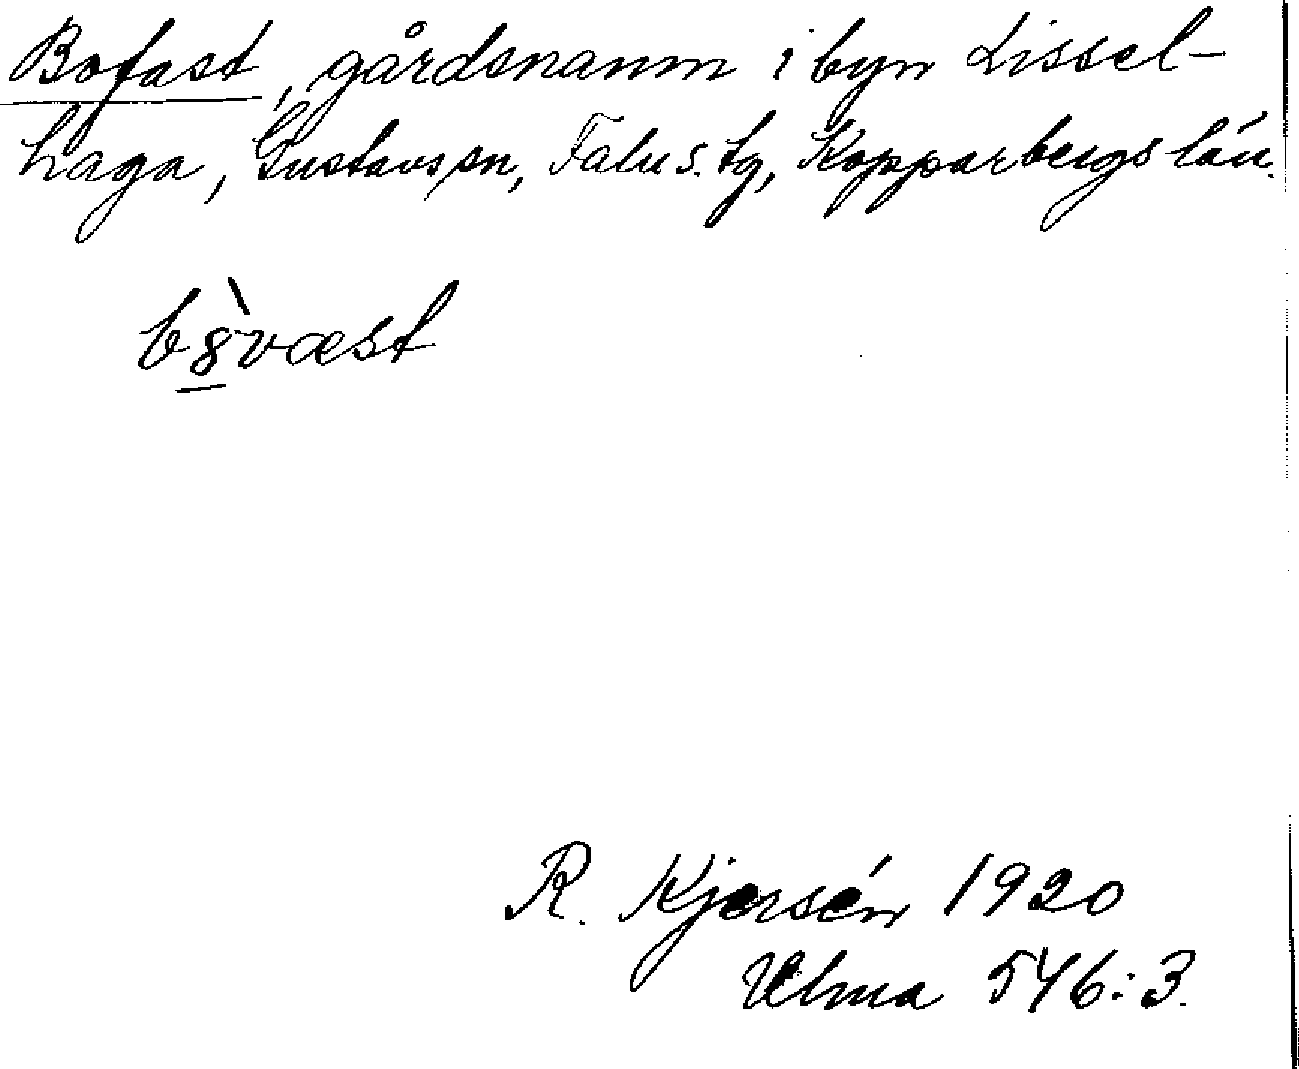 Bofast, gårdsnamn i byn Lissel-
haga, Gustavs sn, Falu s. tg, Kopparbergs län.
b8̲̀væst
R. Kjersén 1920
Ulma 546:3.